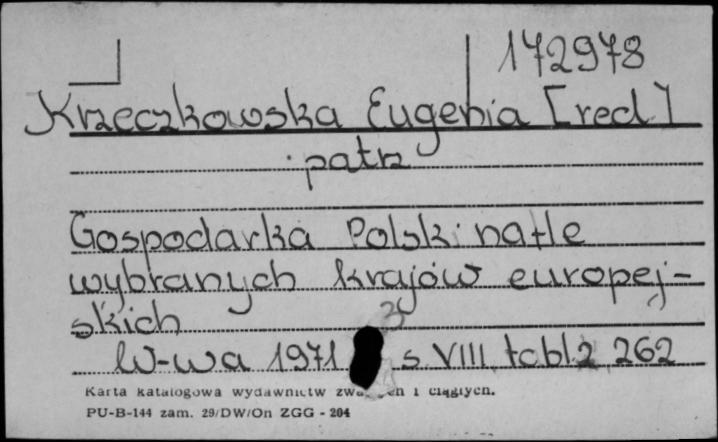 172978
Krzeczkowska Eugenia [red.]
patrz
Gospodarka Polski na tle
wybranych krajów europej-
skich
W-wa 1971 s. VIII, tabl. 2, 262
Karta katalogowa wydawnictw i ciągłych.
PU-B-144 zam. 29/DW/On ZGG - 204